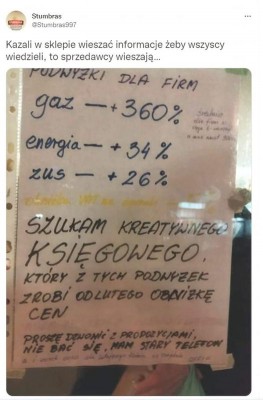 Stumbras
@Stumbras997
Kazali w sklepie wieszać informacje żeby wszyscy
wiedzieli, to sprzedawcy wieszają...
PODWYŻKI DLA FIRM
gaz — + 360%
energia — + 34%
zus — + 26%
SZUKAM KREATYWNEGO
KSIĘGOWEGO,
KTÓRY Z TYCH PODWYŻEK
ZROBI OD LUTEGO OBNIŻKĘ
CEN
PROSZĘ DZWONIĆ Z PROPOZYCJAMI,
NIE BAĆ SIĘ, MAM STARY TELEFON